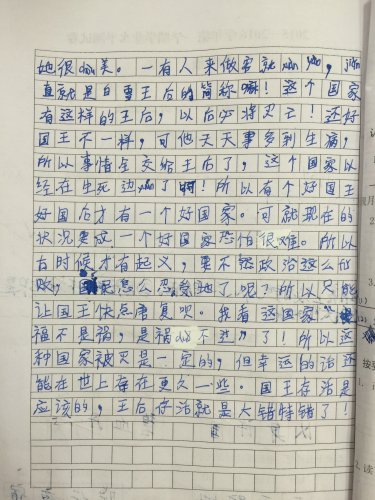 她很dou美。一有人来做客就
直就是白雪王后的简称嘛！这个国家
有这样的王后，以后必将灭亡！还好
国王不一样，可他天天事多到生病，
所以事情全交给王后了，这个国家已
经在生死边了啊！所以有个好国王
好国后才有一个好国家。可就现在的
状况要成一个好国家恐怕很难。所以
有时候才有起义，要不然政治这么
败，国怎么忍受她了呢？所以只能
让国王快点康复吹。我看这国家
福不是祸，是祸不过了！所以这
种国家被灭是一定的，但幸运的话还
能在世上存在更久一些。国王存活是
应该的，王后存活就是大错特错了！